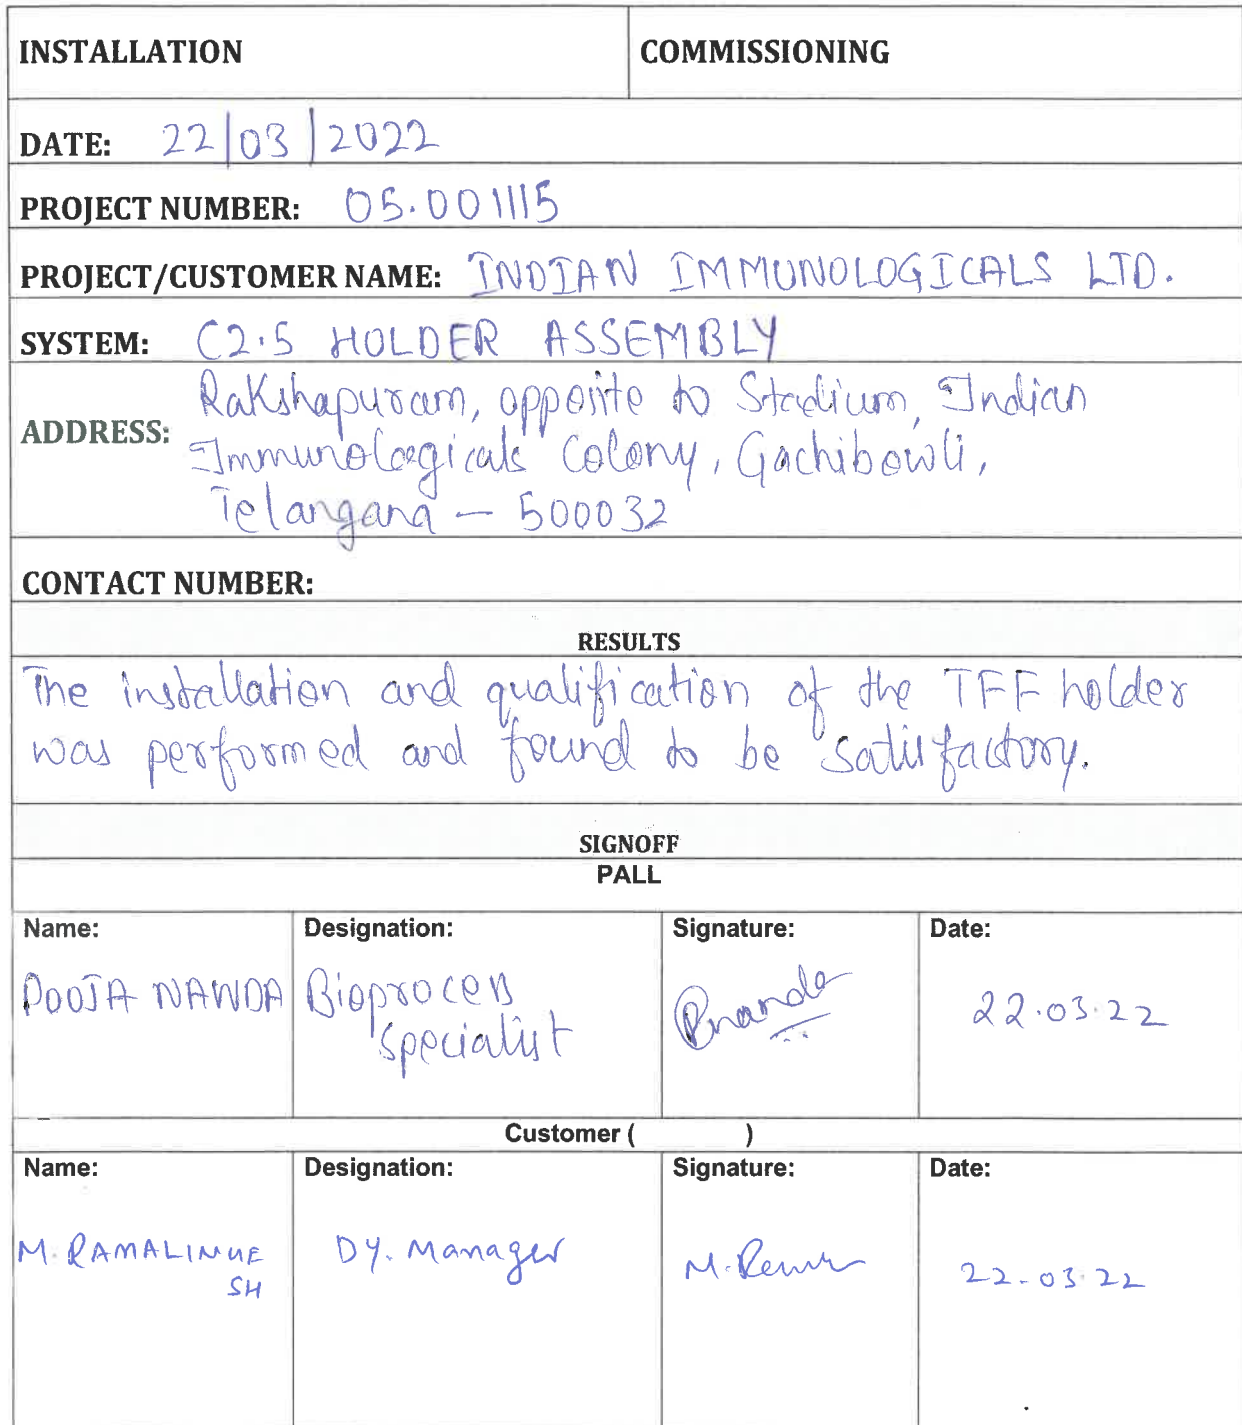 INSTALLATION COMMISSIONING
DATE: 22/03/2022
PROJECT NUMBER: 05.001115
PROJECT/CUSTOMER NAME: INDIAN IMMUNOLOGICALS LTD.
SYSTEM: C2.5 HOLDER ASSEMBLY
ADDRESS: Rakshapuram, opposite to Stadium, Indian
Immunologicals Colony, Gachibowli,
Telangana - 500032
CONTACT NUMBER:
RESULTS
The installation and qualification of the TFF holder
was performed and found to be satisfactory.
SIGNOFF
PALL
Name: Designation: Signature: Date:
POOJA NANDA Bioprocess Pnanda 22.03.22
Specialist
Customer ( )
Name: Designation: Signature: Date:
M. Dy. Manager 22.03.22